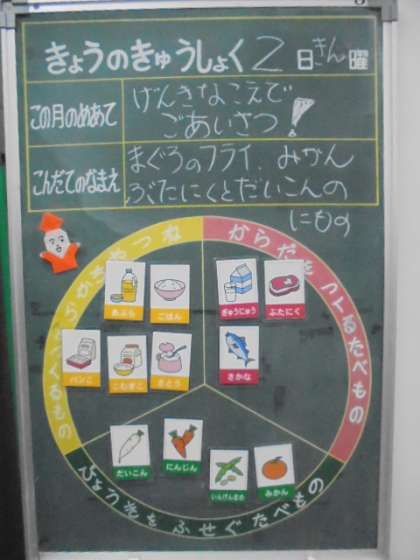 きょうのきゅうしょく 2日きん曜
この月のめあて
げんきなこえで
ごあいさつ!
こんだてのなまえ
まぐろのフライ、みかん
ぶたにくとだいこんの
にもの
からだをつくるたべもの
あぶら
ごはん
ぎゅうにゅう
ぶたにく
パンこ
こむぎこ
さとう
さかな
だいこん
にんじん
いんげんまめ
みかん
びょうきをふせぐたべもの